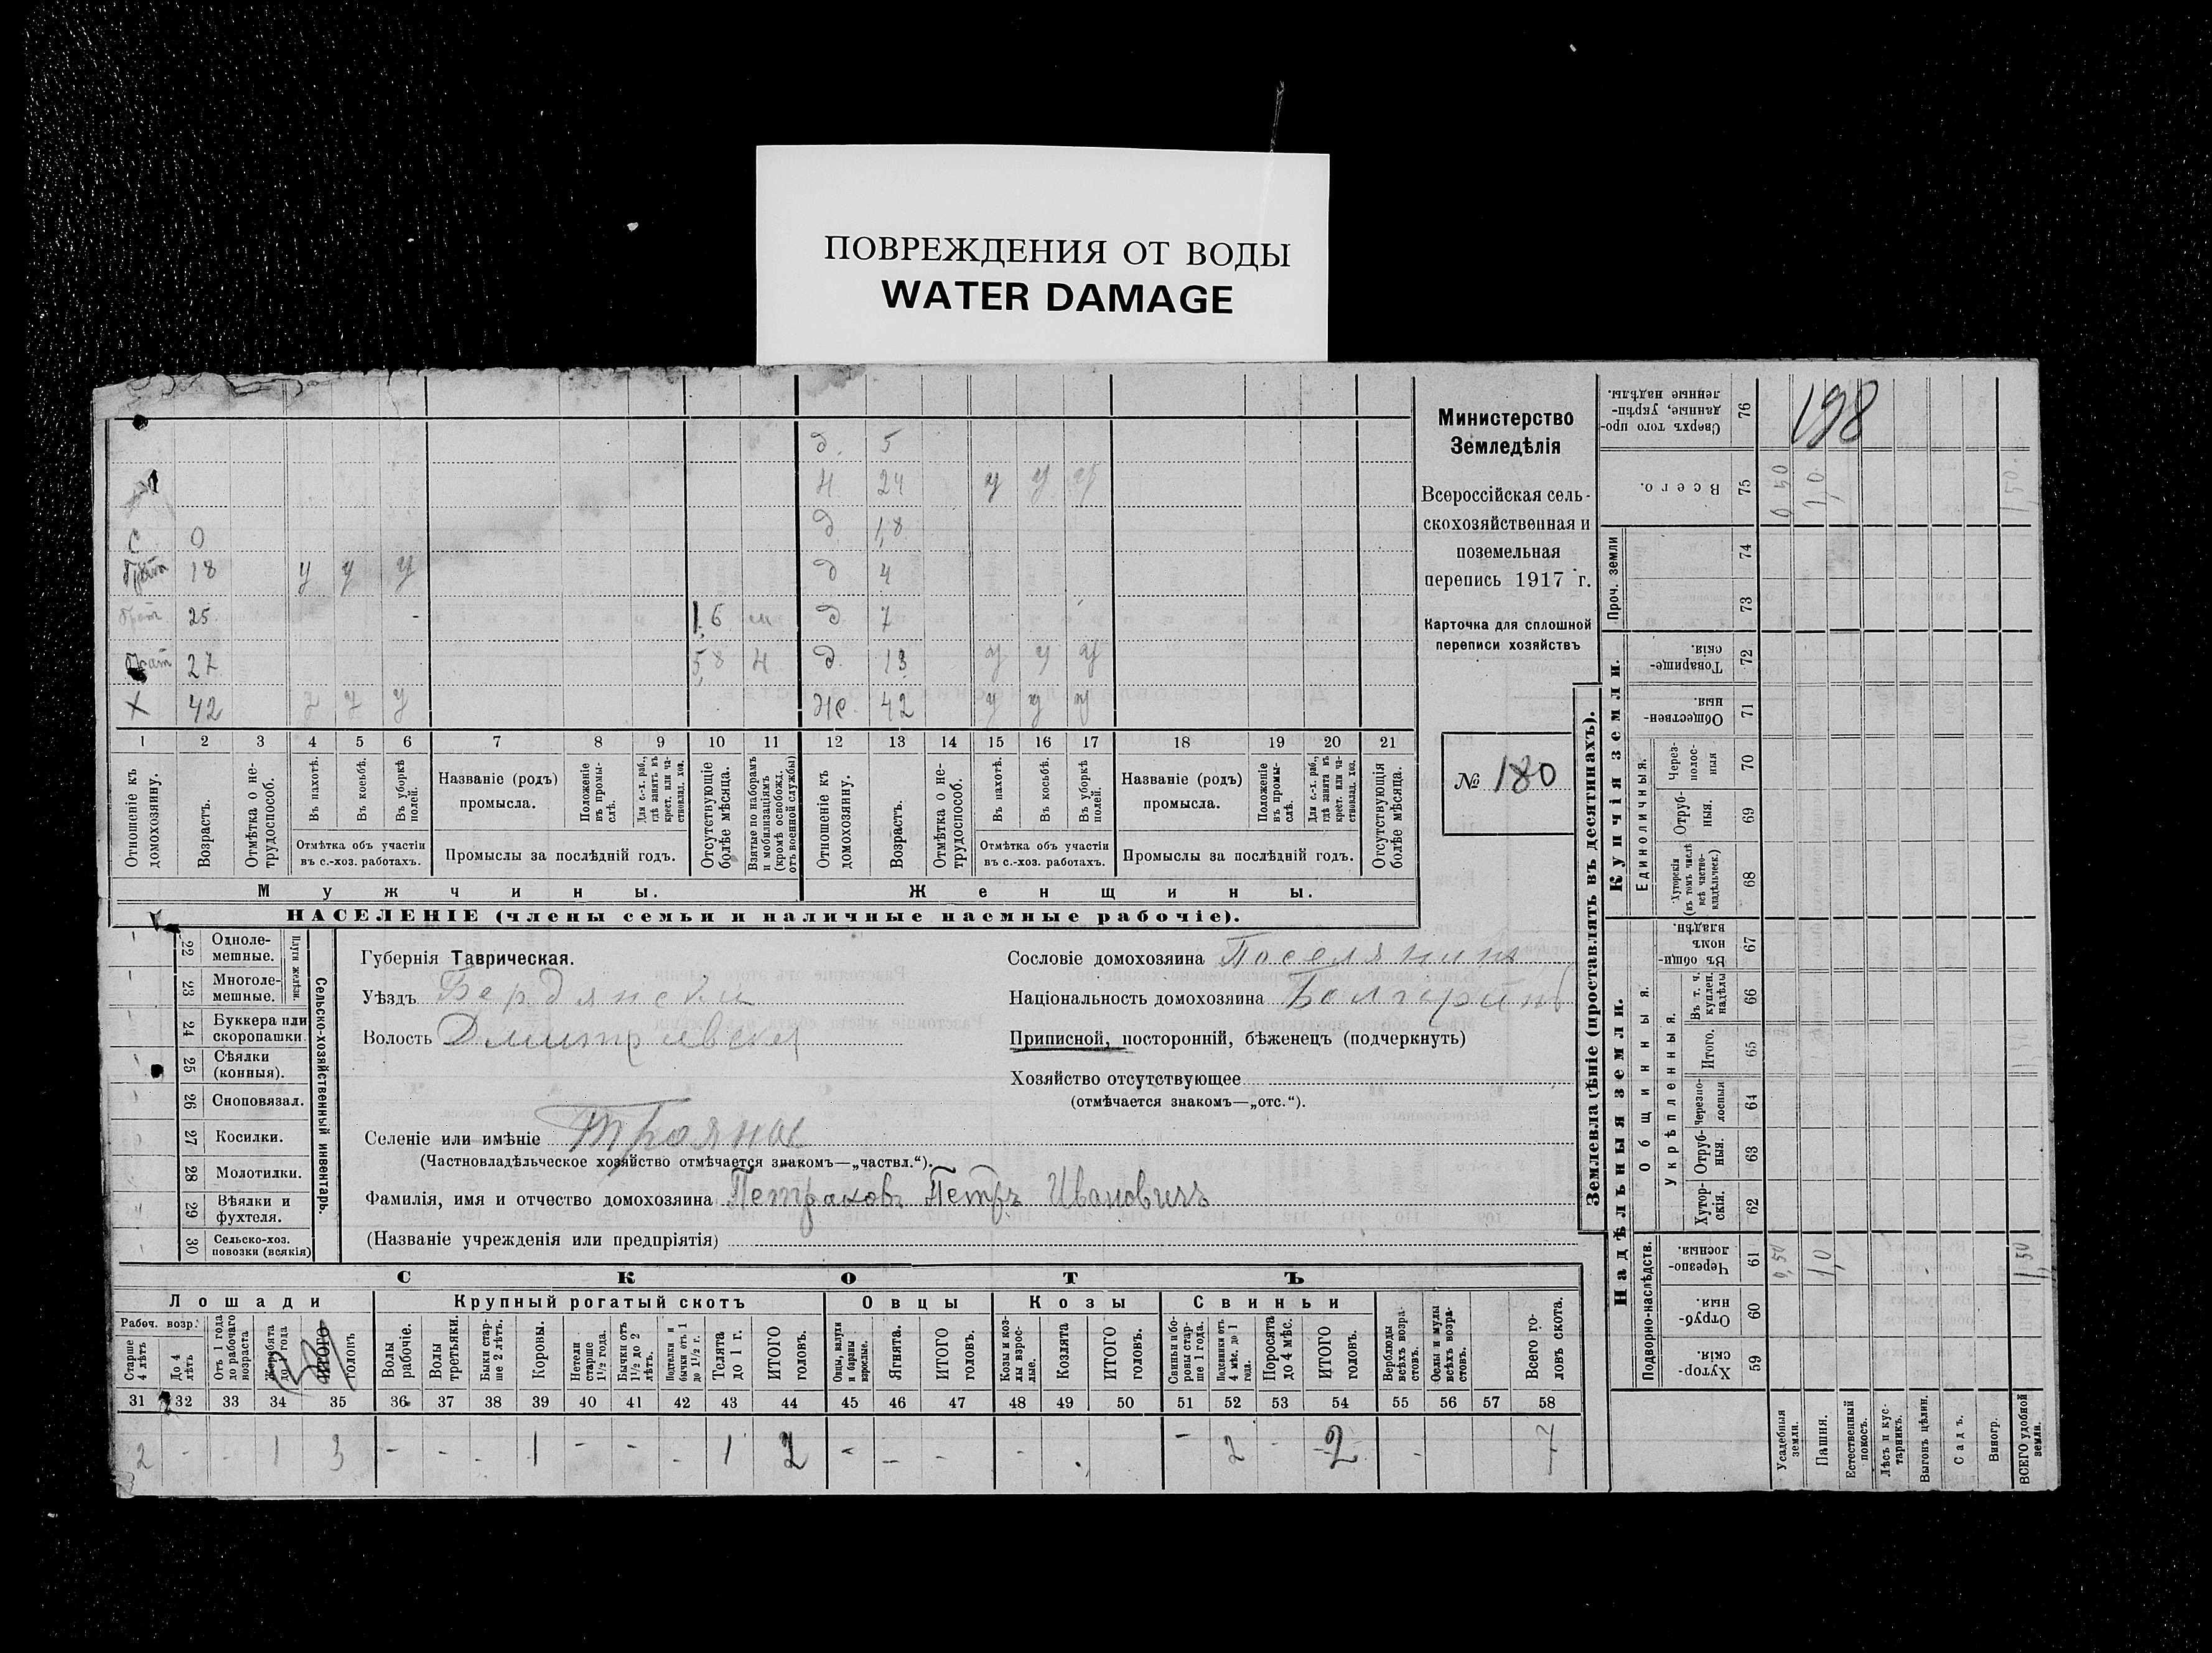 ПОВРЕЖДЕНИЯ ОТ ВОДЫ
WATER DAMAGE
д. 5
Н 24 у у у
д 1,8
С 0
брат 18 у у у д 4
брат 25 1,6 м д 7
брат 27 5,8 Н д. 13 у у у
Х 42 у у у же. 42 у у у
1 2 3 4 5 6 7 8 9 10 11 12 13 14 15 16 17 18 19 20 21
Отношеніе къ домохозяину.
Возрастъ.
Отмѣтка о не-трудоспособ.
Въ пахотѣ.
Въ косьбѣ.
Въ уборкѣ полей.
Отмѣтка объ участіи въ с.-хоз. работахъ.
Названіе (родъ) промысла.
Положеніе въ промы-слѣ.
Для с.-х. раб., гдѣ занятъ въ крест. или ча-стновлад. хоз.
Промыслы за послѣдній годъ.
Отсутствующіе болѣе мѣсяца.
Взятые по наборамъ и мобилизаціямъ (кромѣ освобожд. отъ военной службы)
Отношеніе къ домохозяину.
Возрастъ.
Отмѣтка о не-трудоспособ.
Въ пахотѣ.
Въ косьбѣ.
Въ уборкѣ полей.
Отмѣтка объ участіи въ с.-хоз. работахъ.
Названіе (родъ) промысла.
Положеніе въ промы-слѣ.
Для с.-х. раб., гдѣ занята въ крест. или ча-стновлад. хоз.
Промыслы за послѣдній годъ.
Отсутствующія болѣе мѣсяца.
Мужчины. Женщины.
НАСЕЛЕНІЕ (члены семьи и наличные наемные рабочіе).
Министерство
Земледѣлія
Всероссійская сель-
скохозяйственная и
поземельная
перепись 1917 г.
Карточка для сплошной
переписи хозяйствъ
№ 180
22 Одноле-мешные.
23 Многоле-мешные.
Плуги желѣзн.
24 Буккера или скоропашки
25 Сѣялки (конныя).
26 Сноповязал.
27 Косилки.
28 Молотилки.
29 Вѣялки и фухтеля.
30 Сельско-хоз. повозки (всякія)
Сельско-хозяйственный инвентарь.
Губернія Таврическая.
Уѣздъ Бердянски
Волость Дмитріевская
Селеніе или имѣніе Трояны
(Частновладѣльческое хозяйство отмѣчается знакомъ—„частвл.“).
Фамилія, имя и отчество домохозяина Петраковъ Петръ Ивановичъ
(Названіе учрежденія или предпріятія)
Сословіе домохозяина Поселянинъ
Національность домохозяина Болгаринъ
Приписной, посторонній, бѣженецъ (подчеркнуть)
Хозяйство отсутствующее
(отмѣчается знакомъ—„отс.“).
СКОТЪ
Лошади Крупный рогатый скотъ Овцы Козы Свиньи
Рабоч. возр.
Старше 4 лѣтъ
До 4 лѣтъ
Отъ 1 года до рабочаго возраста
Жеребята до 1 года
ИТОГО головъ
Волы рабочіе.
Волы третьяки.
Быки стар-ше 2 лѣтъ.
Коровы.
Нетели старше 1½ года.
Бычки отъ 1½ до 2 лѣтъ.
Подтелки и бычки отъ 1 до 1½ г.
Телята до 1 г.
ИТОГО головъ.
Овцы, валухи и бараны взрослые.
Ягнята.
ИТОГО головъ.
Козы и коз-лы взрос-лые.
Козлята
ИТОГО головъ.
Свиньи и бо-ровы стар-ше 1 года.
Подсвинки отъ 4 мѣс. до 1 года.
Поросята до 4 мѣс.
ИТОГО головъ.
Верблюды всѣхъ возра-стовъ.
Ослы и мулы всѣхъ возра-стовъ.
Всего го-ловъ скота.
31 32 33 34 35 36 37 38 39 40 41 42 43 44 45 46 47 48 49 50 51 52 53 54 55 56 57 58
2 - - 1 3 - - - 1 - - - 1 2 - - - - - 2 - 2 - 7
Землевладѣніе (проставлять въ десятинахъ).
Надѣльныя земли. Купчія земли. Проч. земли
Подворно-наслѣдств. Общинныя. Укрѣпленныя. Единоличныя.
59 Хутор-скія.
60 Отруб-ныя.
61 Черезпо-лосныя.
62 Хутор-скія.
63 Отруб-ныя.
64 Черезпо-лосныя
65 Итого.
66 Въ т. ч. куплен. надѣлы
67 Въ общи-номъ владѣн.
68 Хуторскія (въ томъ числѣ всѣ частно-владѣльческ.)
69 Отруб-ныя.
70 Через-полос-ныя
71 Обществен-ныя.
72 Товарище-скія.
73
74
75 Всего.
76 Сверхъ того про-данные, укрѣп-ленные надѣлы.
198
0,50 1,0 1,50
0,50 1,0 1,50
Усадебныя земли.
Пашня.
Естественный покосъ.
Лѣсъ и кус-тарникъ.
Выгонъ цѣлин.
Садъ.
Виногр.
ВСЕГО удобной земли.